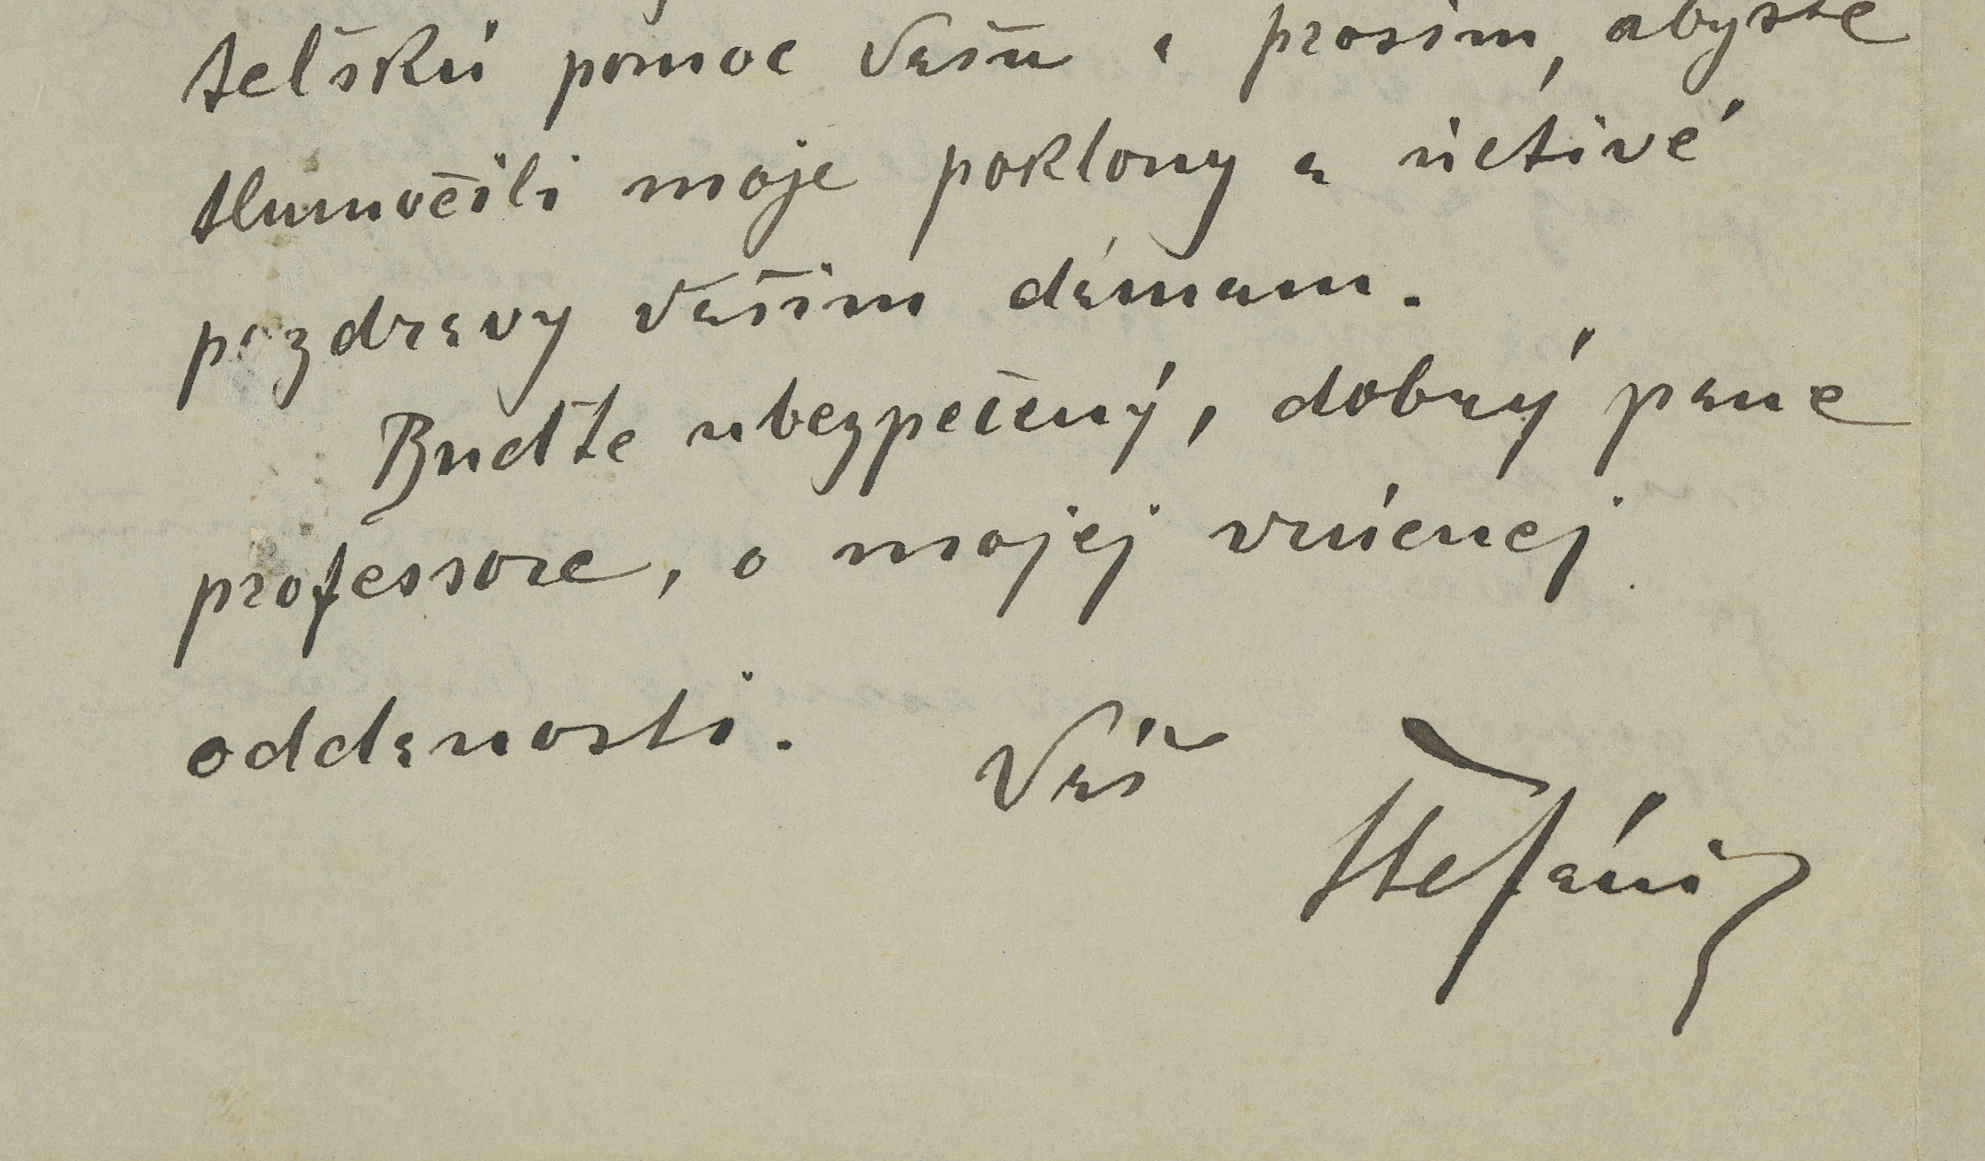 telskú pomoc Vašu a prosím, abyste
tlumočili moje poklony a úctivé
pozdravy Vašim dámam.
Buďte ubezpečený, dobrý pane
professore, o mojej vrúcnej
oddanosti. Váš
Štefánik